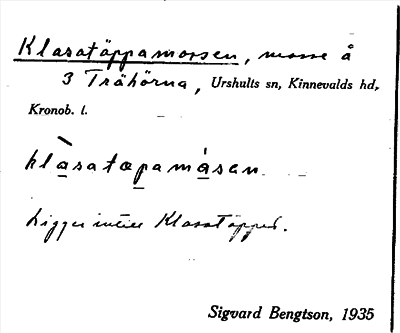 Klasatäppamossen, mosse å
3 Trähörna, Urshults sn, Kinnevalds hd,
Kronob. l.
klàsatæpamåsen
Ligger intill Klasatäppan.
Sigvard Bengtson, 1935